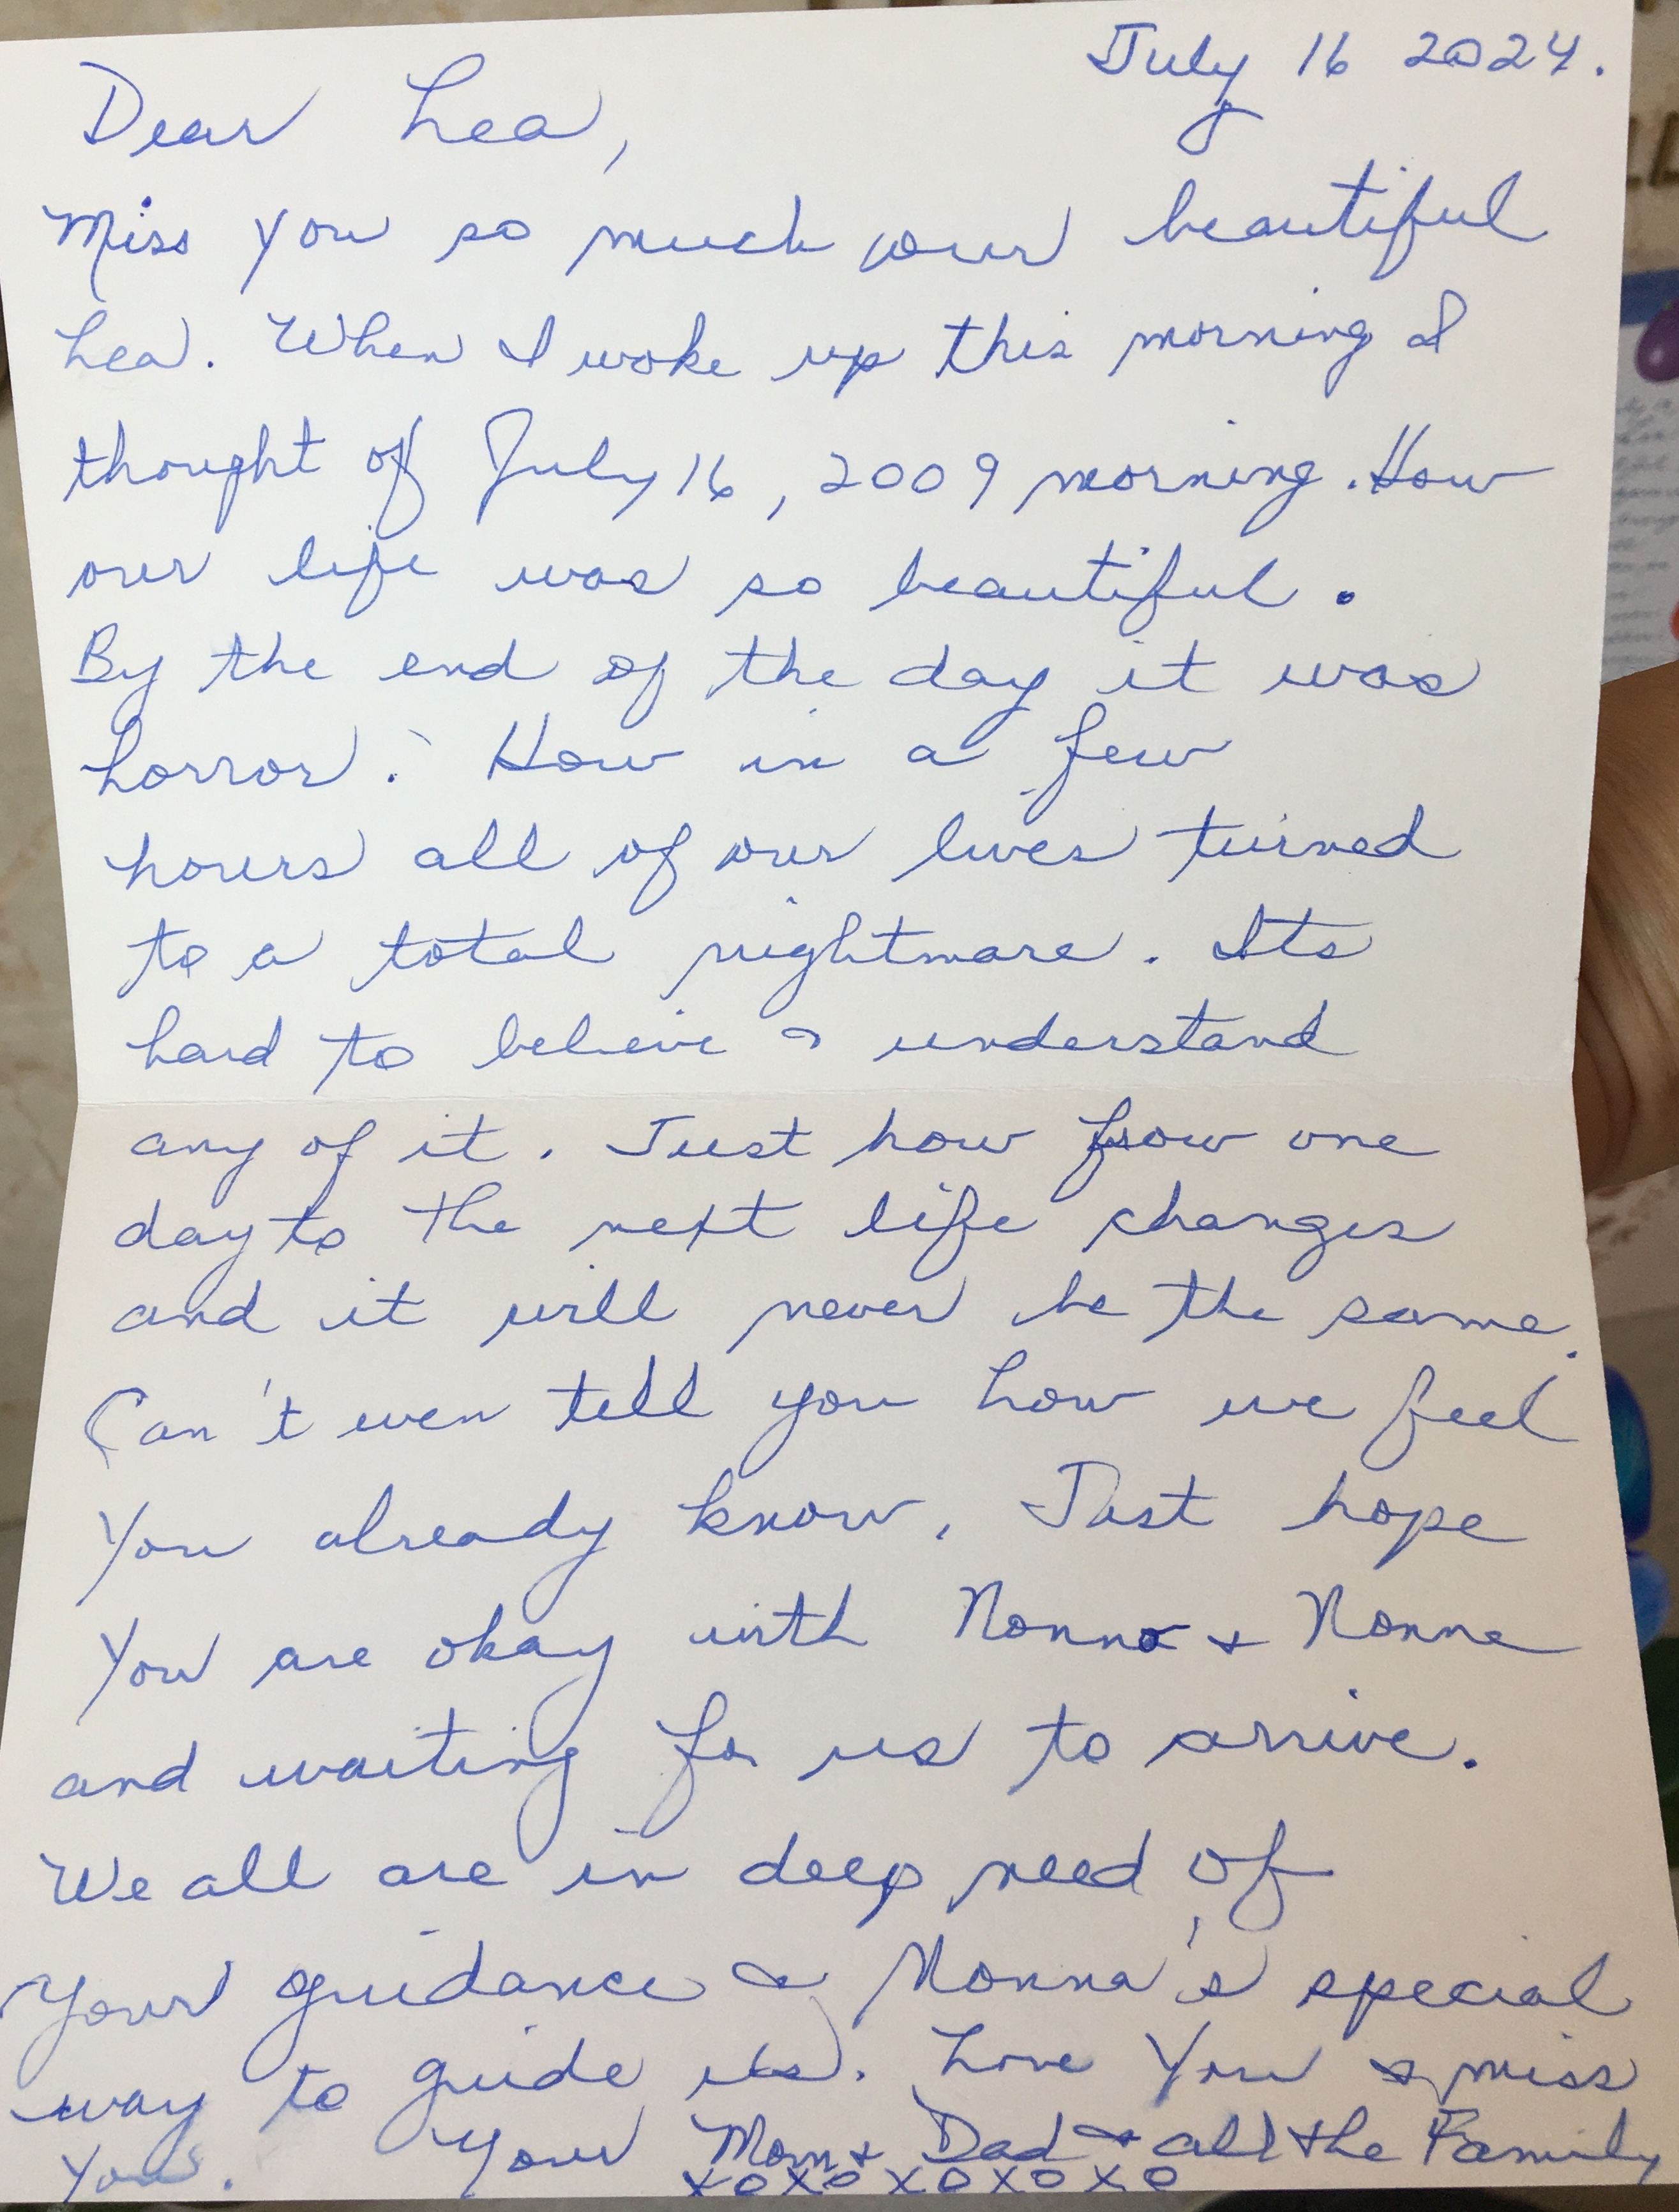 July 16 2024.
Dear Lea,
Miss you so much our beautiful
Lea. When I woke up this morning I
thought of July 16, 2009 morning. How
our life was so beautiful.
By the end of the day it was
horror. How in a few
hours all of our lives turned
to a total nightmare. Its
hard to believe & understand
any of it. Just how from one
day to the next life changes
and it will never be the same.
Can't even tell you how we feel
You already know. Just hope
You are okay with Nonno & Nonna
and waiting for us to arrive.
We all are in deep need of
your guidance & Nonna's special
way to guide us. Love You & miss
You. Your Mom & Dad & all the Family
xoxoxoxoxoxo